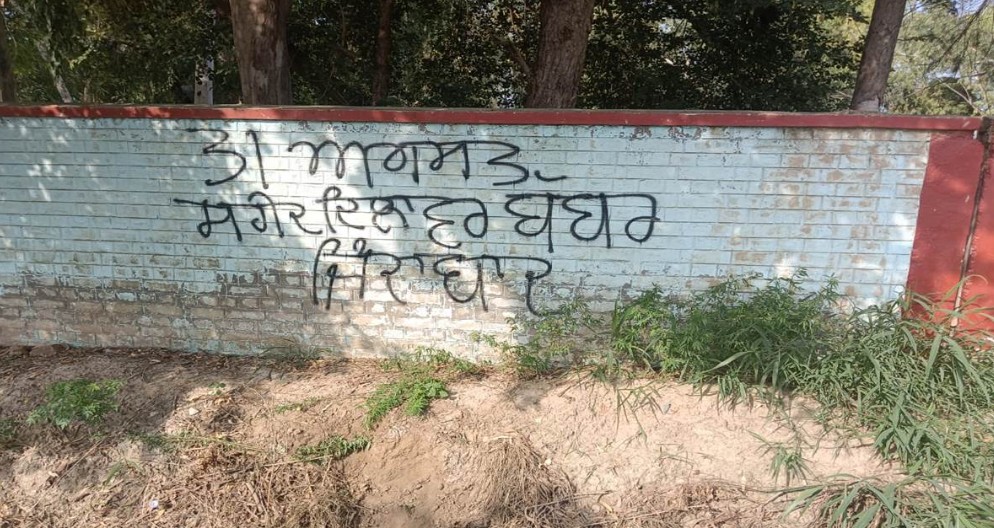 31 ਅਗਸਤ
ਸ਼ਹੀਦ ਦਿਲਾਵਰ ਬੱਬਰ
ਜਿੰਦਾਬਾਦ